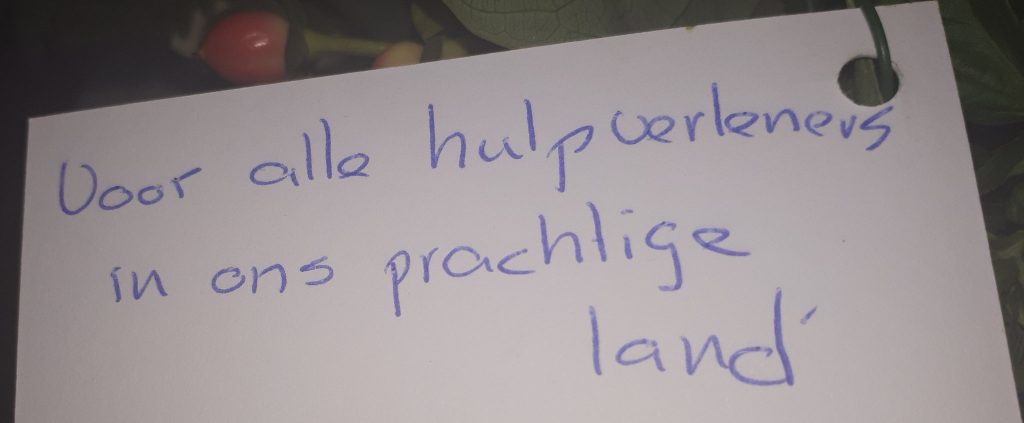 Voor alle hulpverleners
in ons prachtige
land